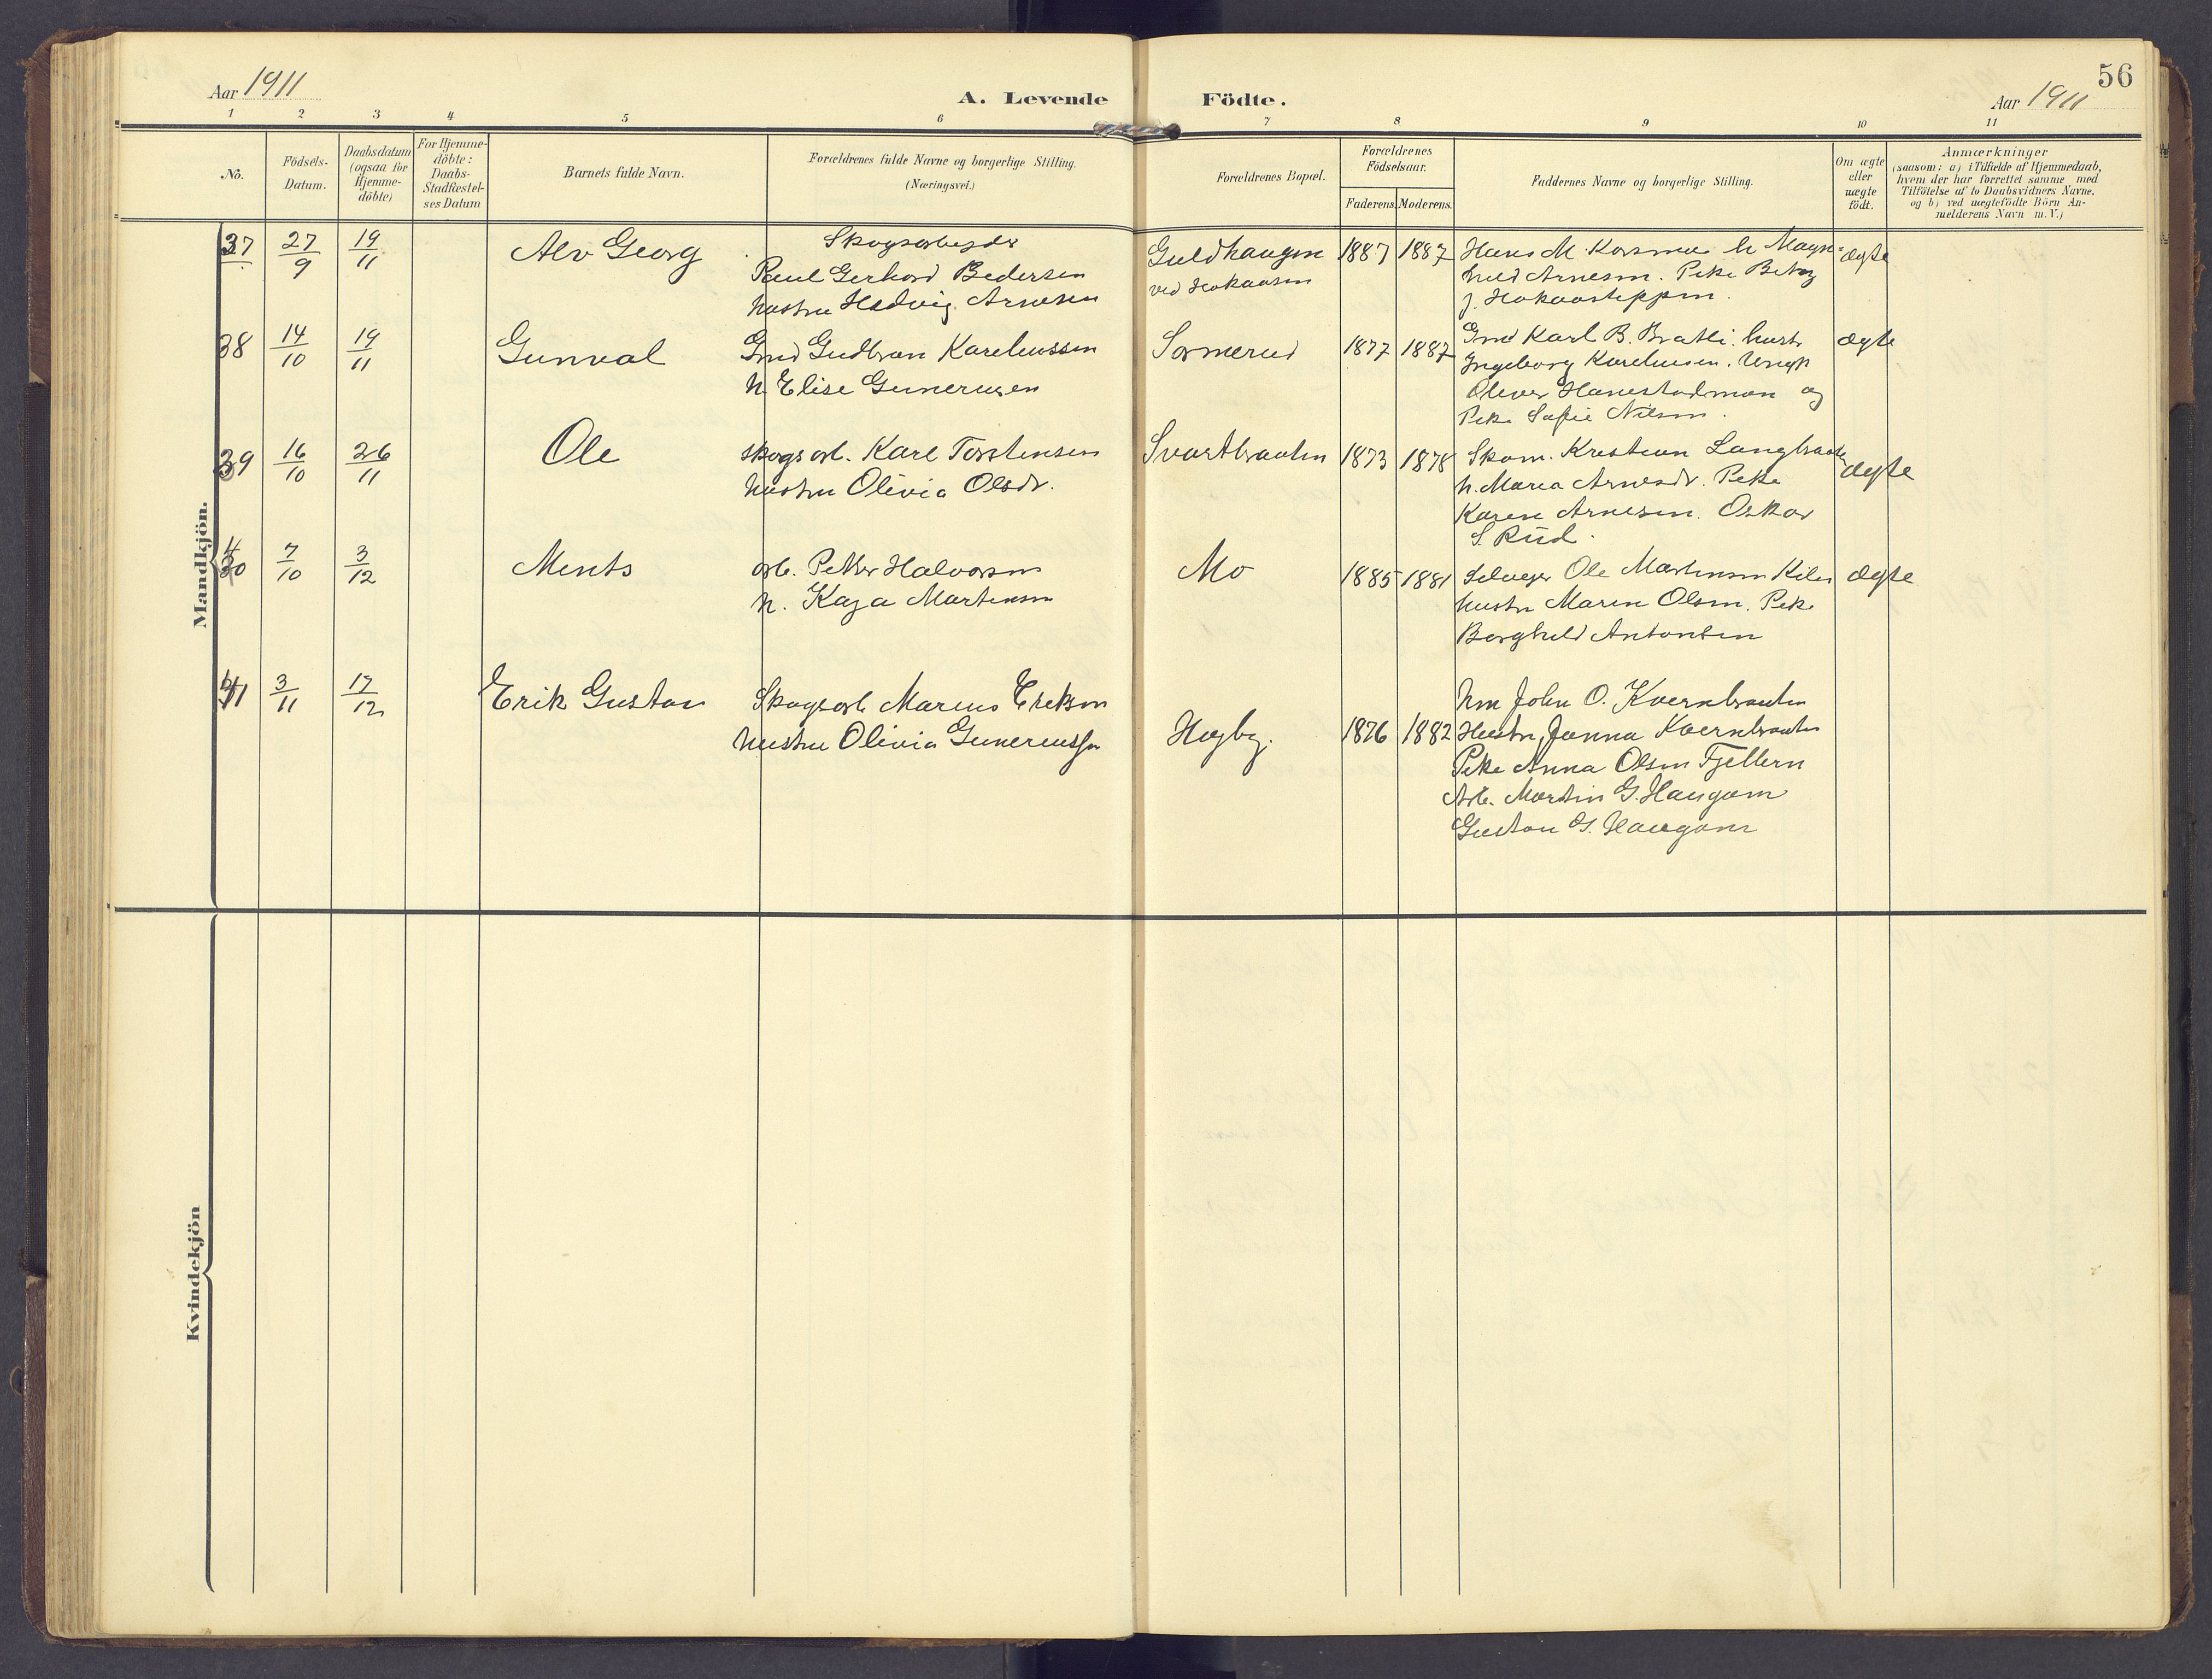 Aar 1911
A. Levende Födte.
Aar 1911
56
1 2 3 4 5 6 7 8 9 10 11
No.
Födsels-
Datum.
Daabsdatum
(ogsaa for
Hjemme-
döbte)
For Hjemme-
döbte:
Daabs-
Stadfæstel-
ses Datum
Barnets fulde Navn.
Forældrenes fulde Navne og borgerlige Stilling.
(Næringsvei.)
Forældrenes Bopæl.
Forældrenes
Födselsaar.
Faderens. Moderens.
Faddernes Navne og borgerlige Stilling.
Om ægte
eller
uægte
födt.
Anmærkninger
(saasom: a) i Tilfælde af Hjemmedaab,
hvem der har forrettet samme med
Tilföielse af to Daabsvidners Navne.
og b) ved uægtefödte Börn An-
melderens Navn m.V.)
Mandkjön.
37
27/9
19/11
Alv Georg
Skogsarbejder
Paul Gerhard Pedersen
hustru Hedvig Arnesen
Guldhaugen
ved Hokaasen
1887 1887
Hans M. Korsmoe h Magn-
hild Arnesen. Pike Betzy
J. Hokaasteppen.
ægte
38
14/10
19/11
Gunval
Gmd Gudbran Kareliussen
h. Elise Gunerusen
Sormerud
1877 1887
Gmd Karl B. Bratli. hust
Ingeborg Kareliusen. Ungk
Oliver Hanestadmoen og
Pike Sofie Nilsen.
ægte
39
16/10
26/11
Ole
skogsarb. Karl Torstensen
hustru Olivia Olsdr.
Svartbraaten
1873 1878
Skom. Kristian Langbraaten
h. Maria Arnesdr. Pike
Karen Arnesen. Oskar
S. Rud.
ægte
40
7/10
3/12
Ments
arb. Petter Halvorsen
h. Kaja Martensen
Mo
1885 1881
Selvejer Ole Martensen Kilen
hustru Maren Olsen. Pike
Borghild Antonsen
ægte
41
3/11
17/12
Erik Gustav
Skogsarb Marius Eriksen
hustru Olivia Gunerussen
Hagby.
1876 1882
Hm John O. Kvernbraaten
Hustru Janna Kvernbraaten
Pike Anna Olsen Fjellern
Arb. Martin G. Haugom
Gustav G. Haugom
Kvindekjön